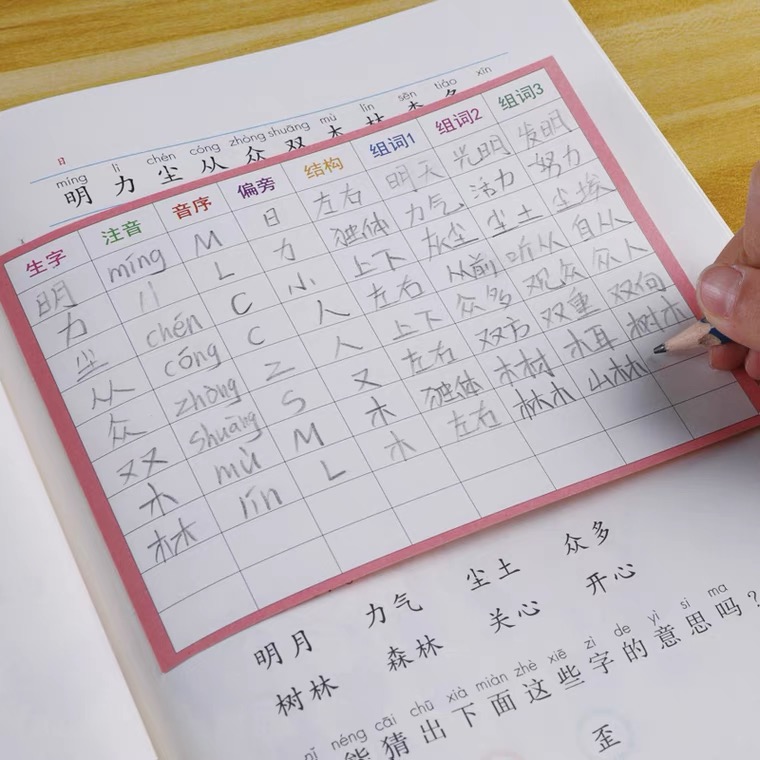 日
míng lì chén cóng zhòng shuāng mù lín sēn tiáo xīn
明 力 尘 从 众 双 木 林
生字 注音 音序 偏旁 结构 组词1 组词2 组词3
明 míng M 日 左右 明天 光明 发明
力 lì L 力 独体 力气 活力 努力
尘 chén C 小 上下 灰尘 尘土 尘埃
从 cóng C 人 左右 从前 听从 自从
众 zhòng Z 人 上下 众多 观众 众人
双 shuāng S 又 左右 双方 双重 双向
木 mù M 木 独体 木材 木耳 树木
林 lín L 木 左右 林木 山林
明月 力气 尘土 众多
树林 森林 关心 开心
nǐ néng cāi chū xià miàn zhè xiē zì de yì si ma
能猜出下面这些字的意思吗？
歪